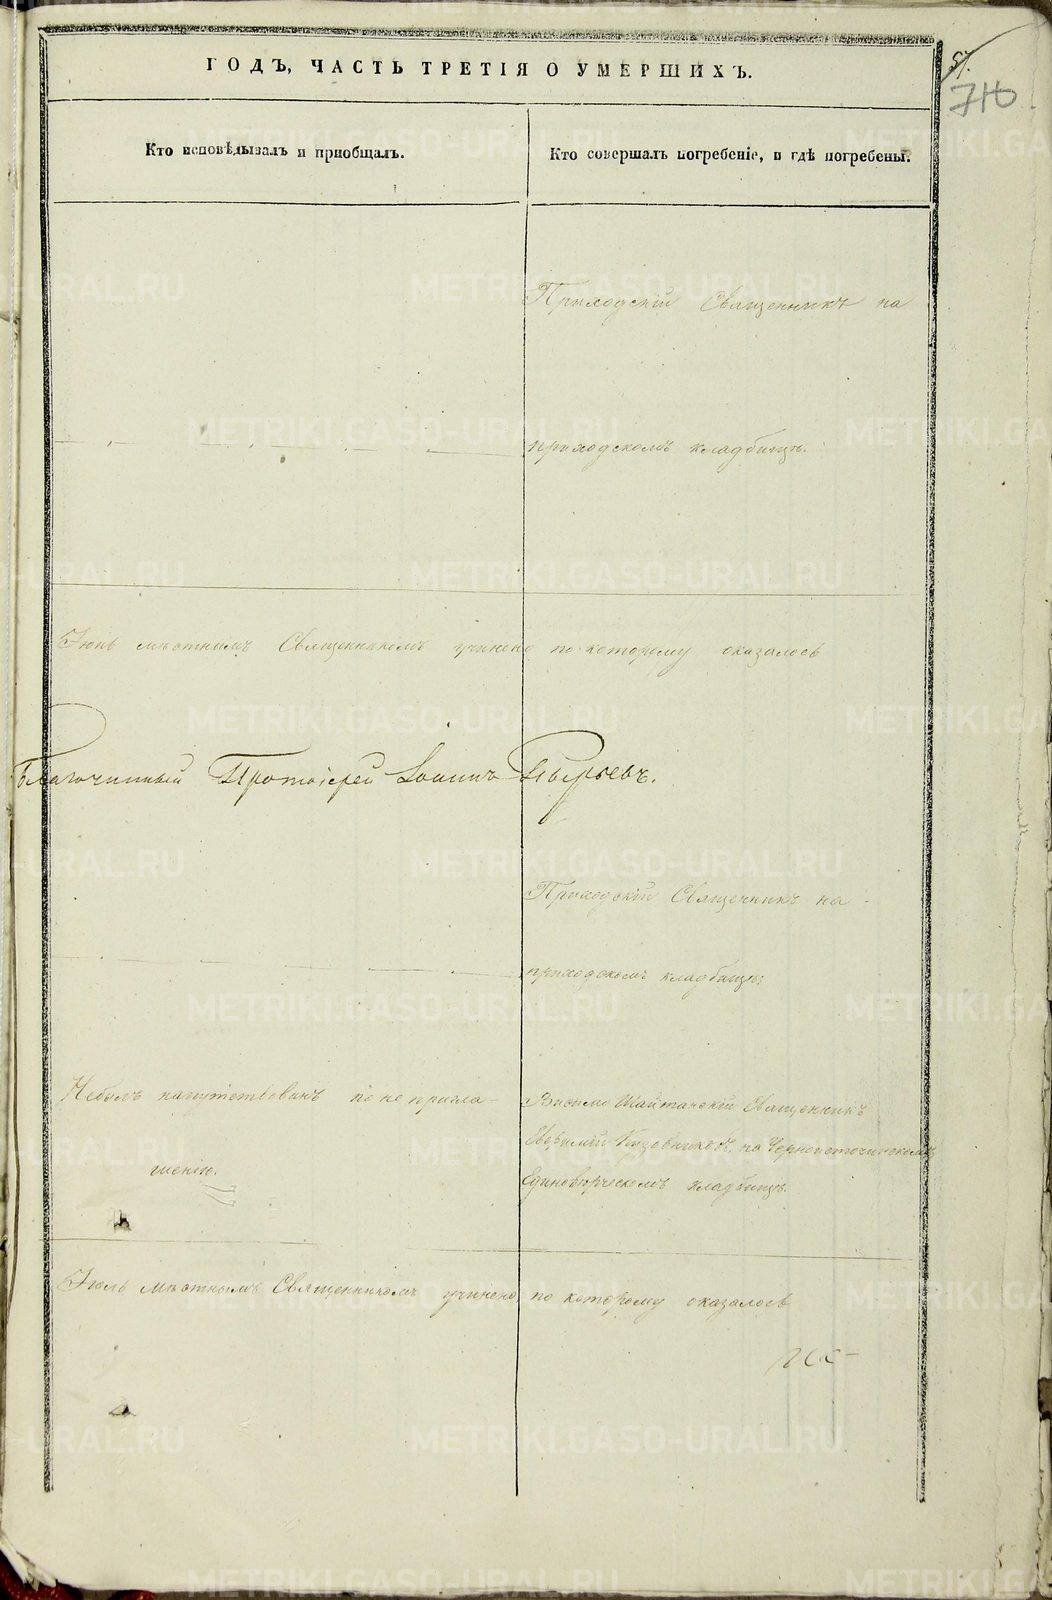 ГОДЪ, ЧАСТЬ ТРЕТІЯ О УМЕРШИХЪ.
57.
710
Кто исповѣдывалъ и пріобщалъ.
Кто совершалъ погребеніе, и гдѣ погребены.
Приходскій Священникъ на
приходскомъ кладбищѣ.
Іюнь мѣстнымъ Священникомъ учинено по которому оказалось
Благочинный Протоіерей Іоаннъ
Приходскій Священникъ на
приходскомъ кладбищѣ.
Небылъ напутствованъ по не пригла-
шенію.
Висимо Шайтанскій Священникъ
на Черноисточинскомъ
Единовѣрческомъ кладбищѣ.
Іюль мѣстнымъ Священникомъ учинено по которому оказалось
METRIKI.GASO-URAL.RU